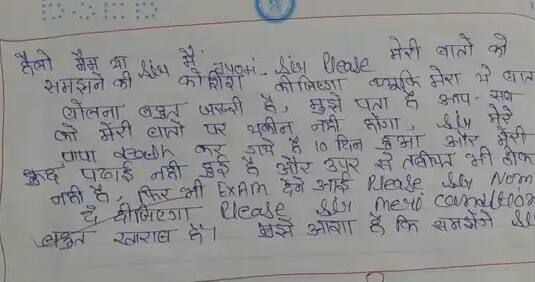 हेलो मैम या Sir मैं, Sir Please मेरी बातों को
समझने की कोशिश कीजिएगा क्योंकि मेरा ये बात
बोलना बहुत जरूरी है, मुझे पता है आप सब
को मेरी बातों पर यकीन नहीं होगा, Sir मेरे
पापा death कर गये है 10 दिन हुआ और मेरी
कुछ पढ़ाई नहीं हुई है और उपर से तबीयत भी ठीक
नहीं है, फिर भी EXAM देने आई Please Sir Num
दे दीजिएगा Please Sir meri condition
बहुत खराब है। मुझे आशा है कि समझेंगे Sir